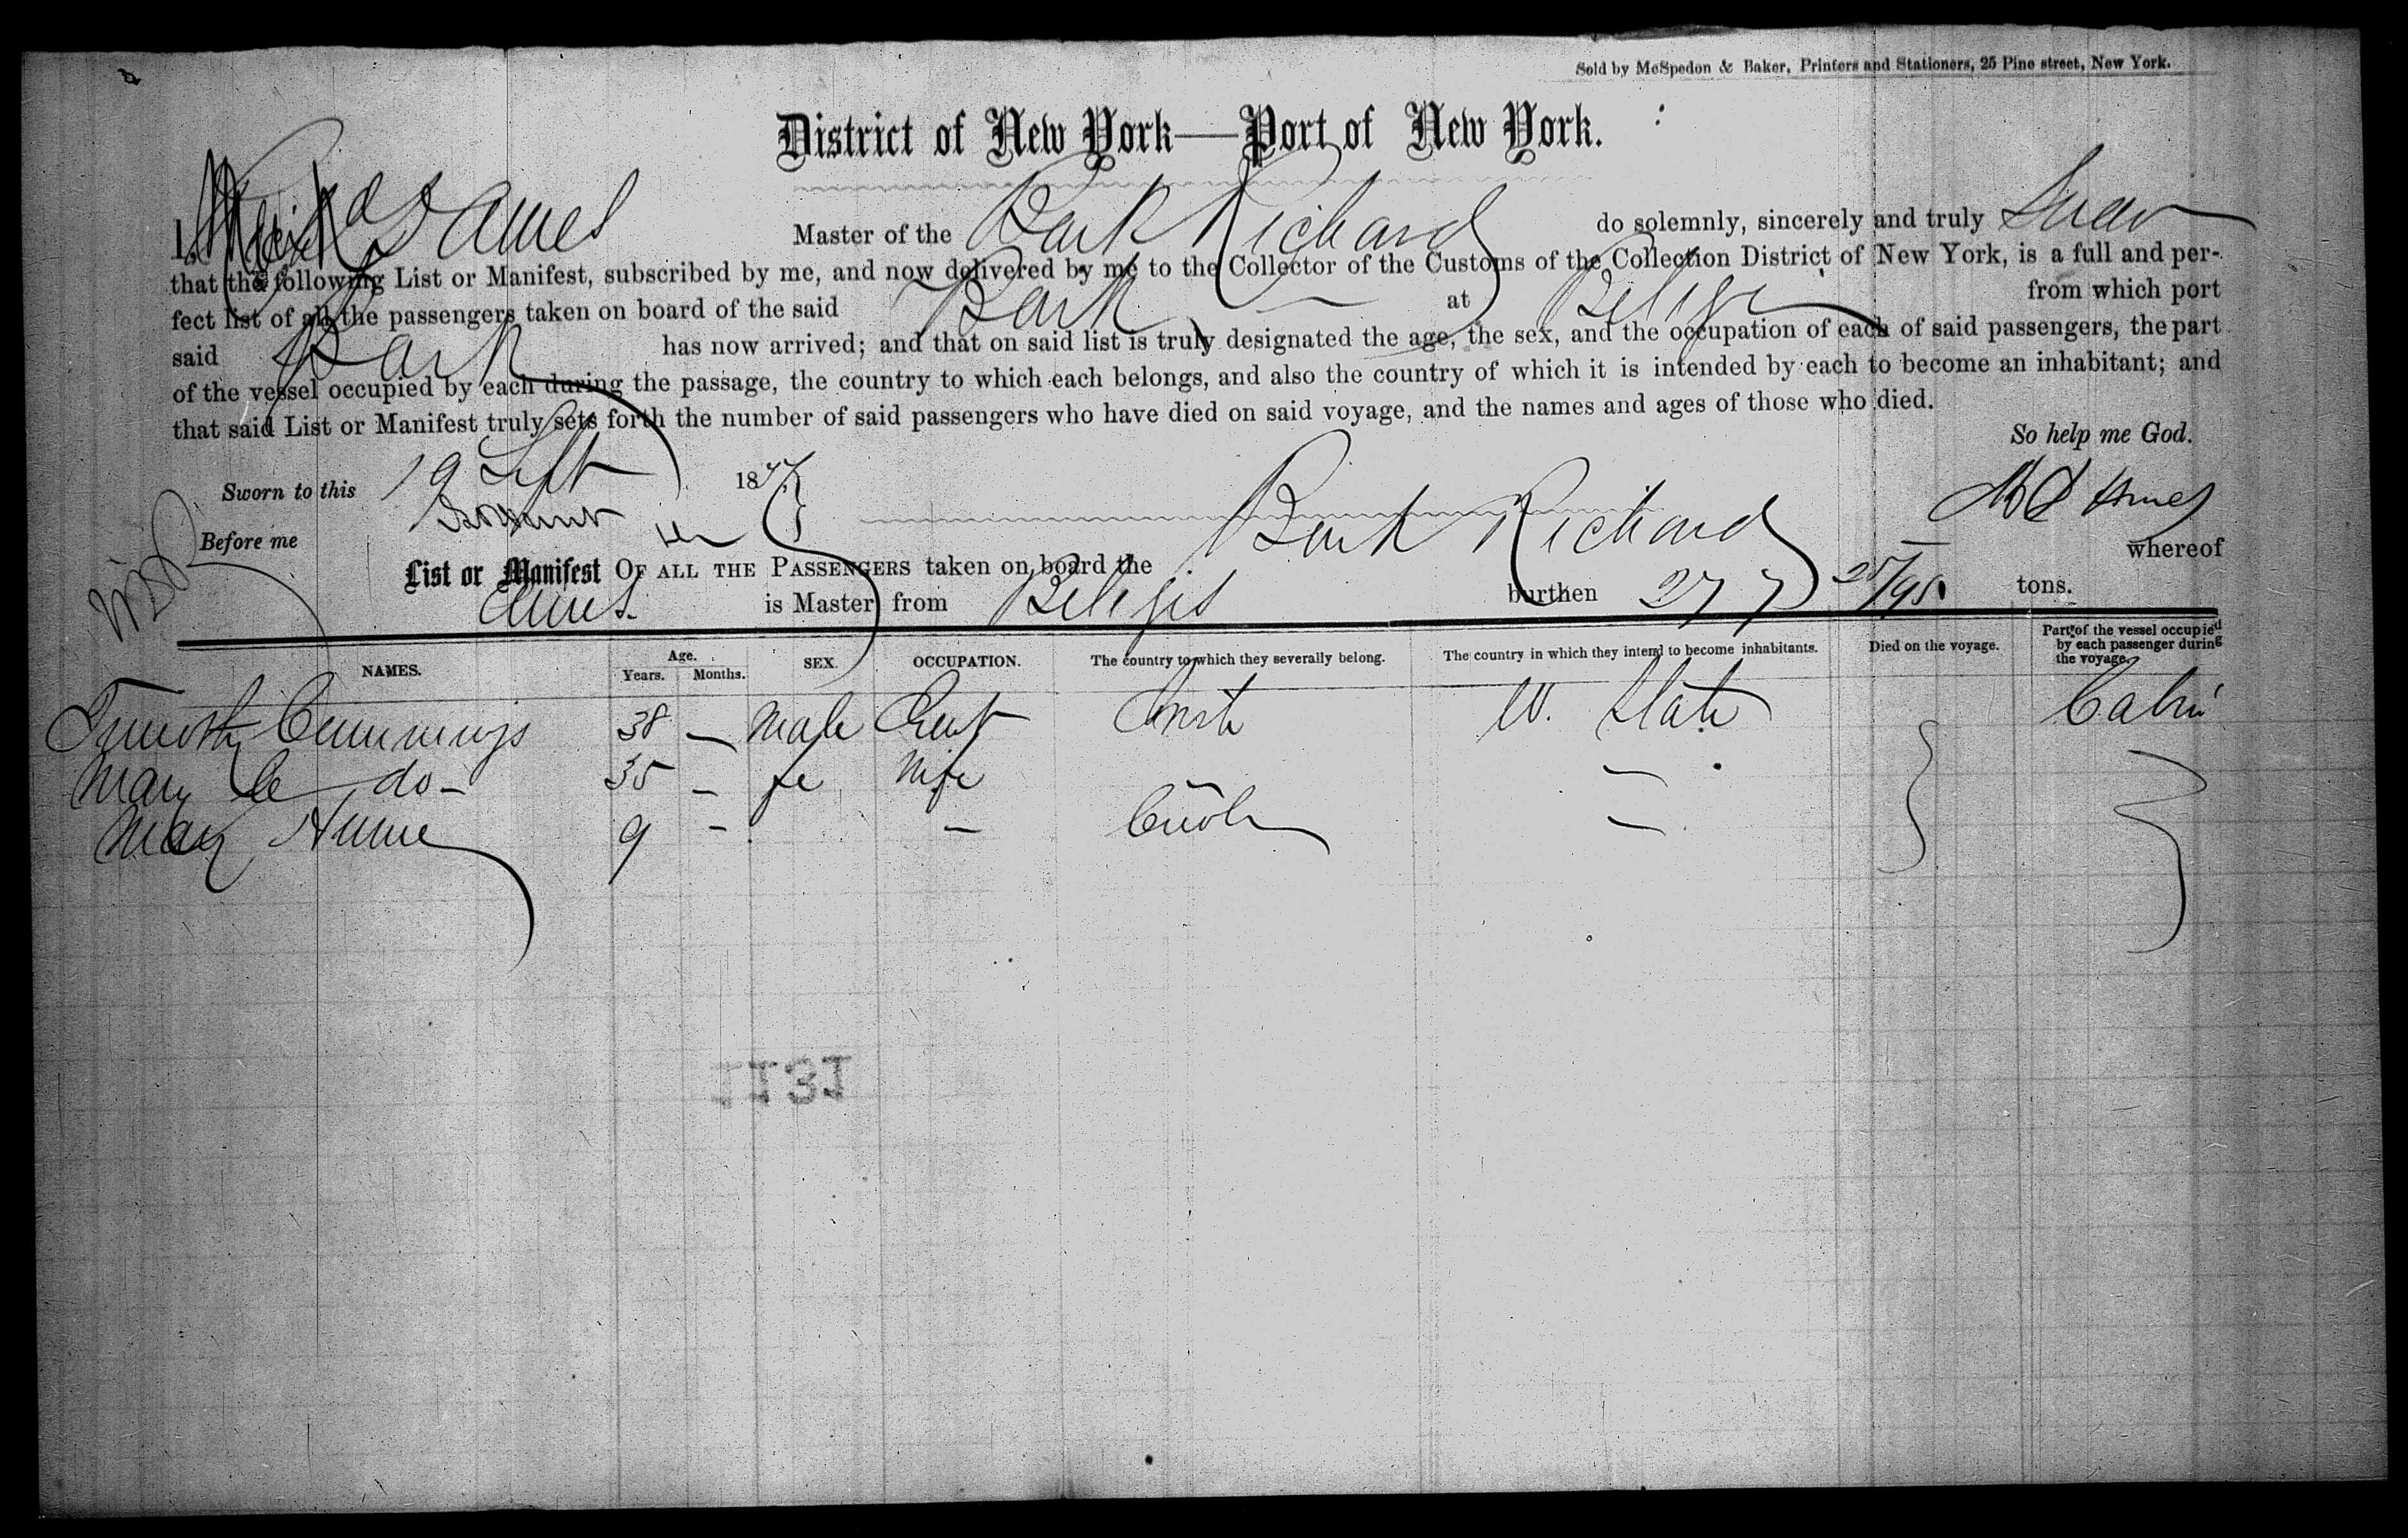 Sold by McSpedon & Baker, Printers and Stationers, 25 Pine street, New York.
District of New York—Port of New York.
I, Ames Master of the Bark Richard do solemnly, sincerely and truly Swear
that the following List or Manifest, subscribed by me, and now delivered by me to the Collector of the Customs of the Collection District of New York, is a full and per-
fect list of all the passengers taken on board of the said Bark at Belize from which port
said Bark has now arrived; and that on said list is truly designated the age, the sex, and the occupation of each of said passengers, the part
of the vessel occupied by each during the passage, the country to which each belongs, and also the country of which it is intended by each to become an inhabitant; and
that said List or Manifest truly sets forth the number of said passengers who have died on said voyage, and the names and ages of those who died.
So help me God.
Sworn to this 19 Sept 1877
Before me
List or Manifest OF ALL THE PASSENGERS taken on board the Bark Richard whereof
Ames is Master from burthen 277 tons.
NAMES. Age. Years. Months. SEX. OCCUPATION. The country to which they severally belong. The country in which they intend to become inhabitants. Died on the voyage. Part of the vessel occupied by each passenger during the voyage.
Timothy Cummings 38 — Male U. State Cabin
Mary C do- 35 — fe Wife —
Mary 9 - - —
1131